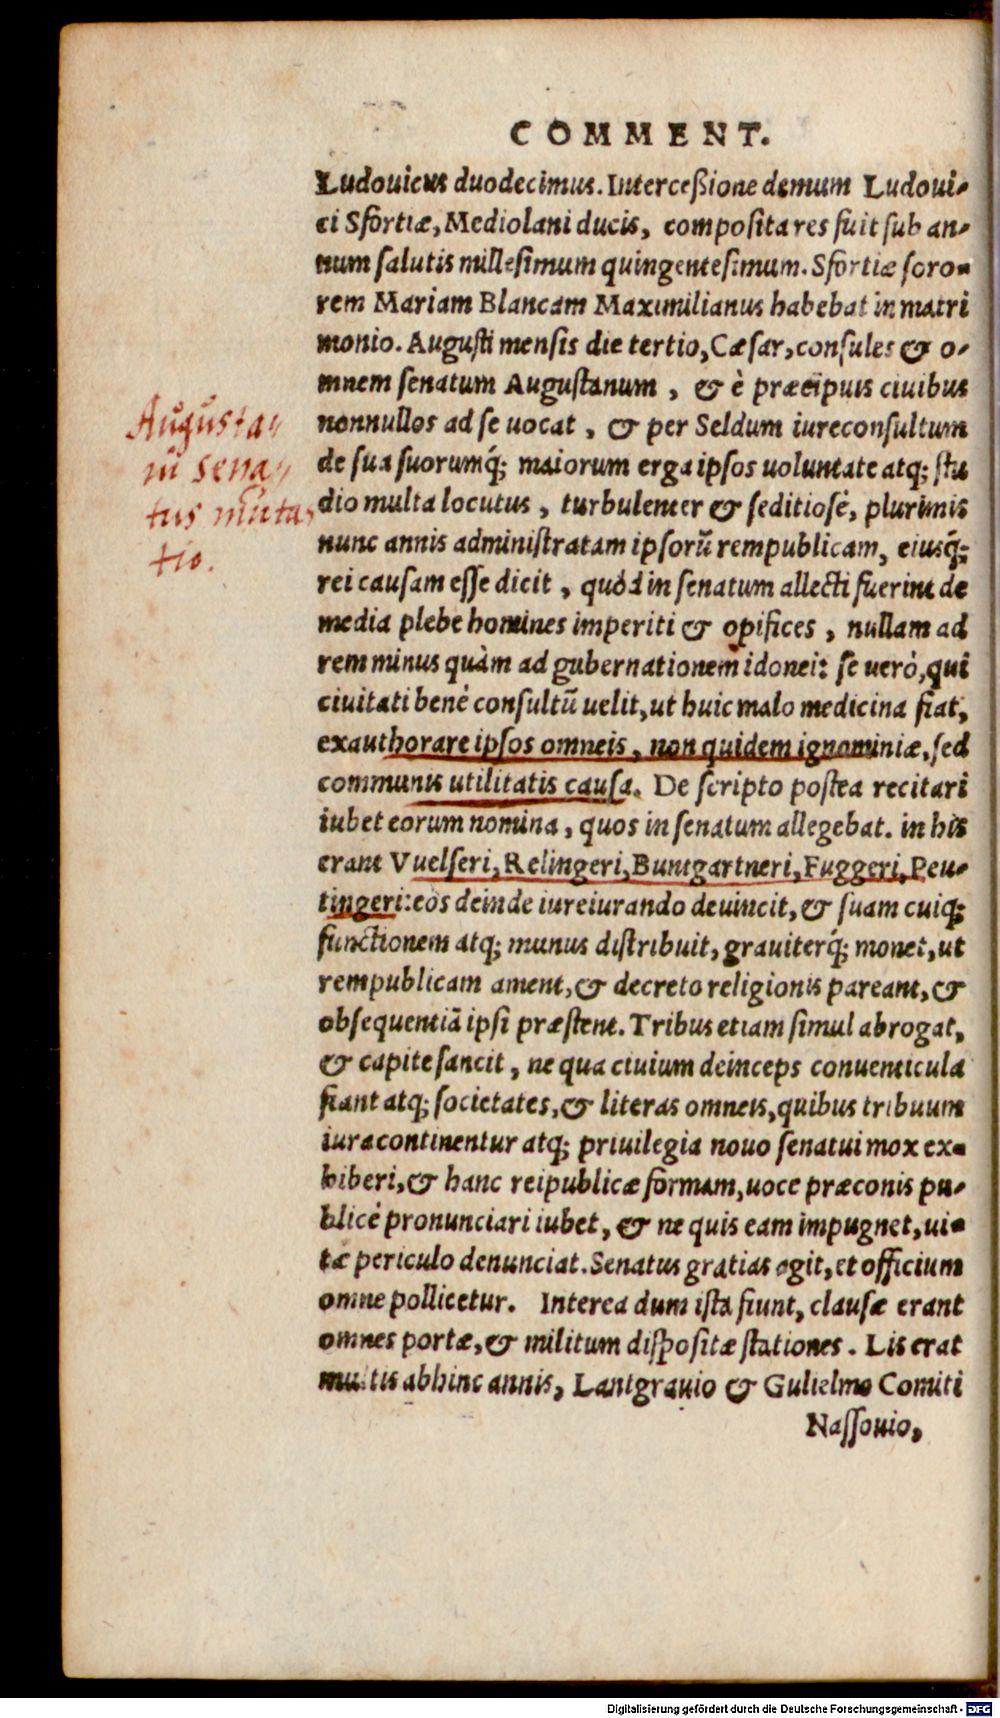 COMMENT.
Ludouicus duodecimus. Interceßione demum Ludoui-
ci Sfortiæ, Mediolani ducis, composita res fuit sub an-
num salutis millesimum quingentesimum. Sfortiæ soro-
rem Mariam Blancam Maximilianus habebat in matri
monio. Augusti mensis die tertio, Cæsar, consules & o-
mnem senatum Augustanum, & è præcipuis ciuibus
nonnullos ad se uocat, & per Seldum iureconsultum
de sua suorumq́; maiorum erga ipsos uoluntate atq; stu
dio multa locutus, turbulenter & seditiosè, plurimis
nunc annis administratam ipsorũ rempublicam, eiusq́;
rei causam esse dicit, quòd in senatum allecti fuerint de
media plebe homines imperiti & opifices, nullam ad
rem minus quàm ad gubernationem idonei: se uerò, qui
ciuitati benè consultũ uelit, ut huic malo medicina fiat,
exauthorare ipsos omneis, non quidem ignominiæ, sed
communis utilitatis causa. De scripto postea recitari
iubet eorum nomina, quos in senatum allegebat. in his
erant Vuelseri, Relingeri, Buntgartneri, Fuggeri, Peu-
tingeri: eos deinde iureiurando deuincit, & suam cuiq;
functionem atq; munus distribuit, grauiterq́; monet, ut
rempublicam ament, & decreto religionis pareant, &
obsequentiã ipsi præstent. Tribus etiam simul abrogat,
& capite sancit, ne qua ciuium deinceps conuenticula
fiant atq; societates, & literas omneis, quibus tribuum
iura continentur atq; priuilegia nouo senatui mox ex-
hiberi, & hanc reipublicæ formam, uoce præconis pu-
blicè pronunciari iubet, & ne quis eam impugnet, ui-
tæ periculo denunciat. Senatus gratias agit, et officium
omne pollicetur. Interea dum ista fiunt, clausæ erant
omnes portæ, & militum dispositæ stationes. Lis erat
multis abhinc annis, Lantgrauio & Gulielmo Comiti
Nassouio,
Augusta/
nĩ sena/
tus muta
tio.
Digitalisierung gefördert durch die Deutsche Forschungsgemeinschaft - DFG